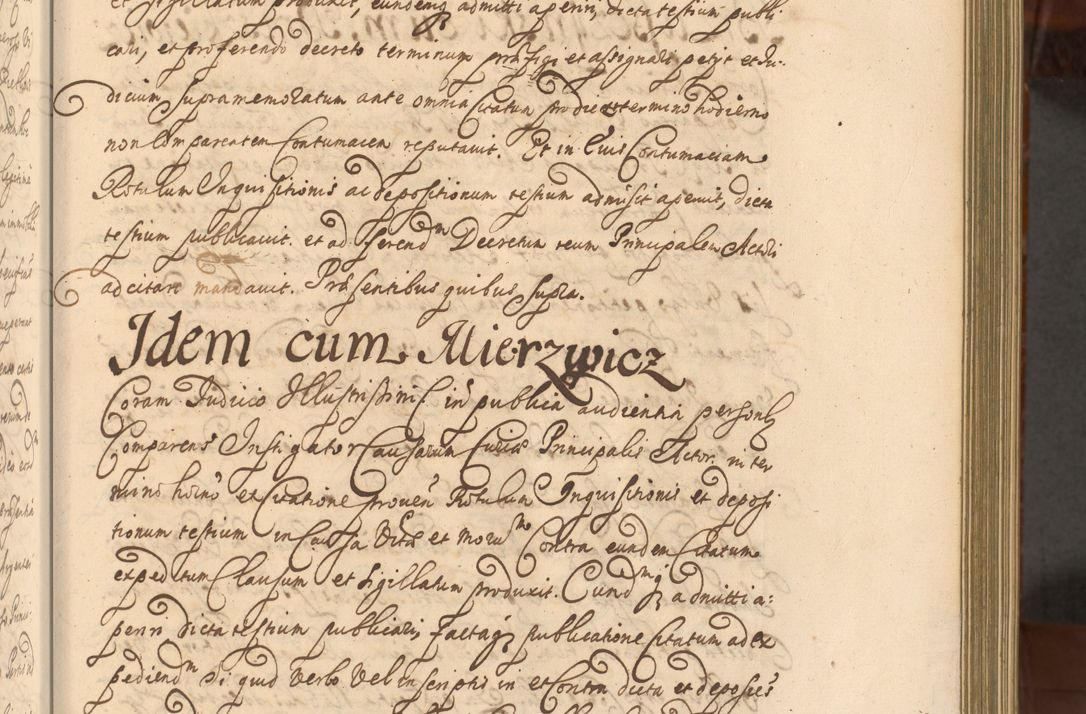 et sigillatum produxit, eundemq admitti aperiri, dicta testium publi
cari, et proferendo decreto terminum præfigi et assignari petijt et Iu-
dicium supramemoratum ante omnia Citatum prodie et termino hodierno
non Comparentem Contumacem reputavit. Et in Eius Contumaciam
Rotulum Inquisitionis ac depositionum testium admisit aperuit, dicta
testium publicavit. et ad ferend Decretum reum Principalem Actori
adcitare mandavit. Præsentibus quibus supra.
Idem cum Mierzwicz
Coram Iudicio Illustrissimi C. in publica audientia personlr
Comparens Instigator Causarum Curiæ Principalis Actor. in ter
mino horno ex Citatione proven Rotulum Inquisitionis et deposi
tionum testium in Causa Vitæ et Moru Contra eundem Citatum
expeditum Clausum et sigillatum produxit. Cundmq admitti a:
periri dicta testium publicari, factaq publicatione Citatum ad ex
pediendm si quid verbo vel in scriptis in et Contra dicta et deposies